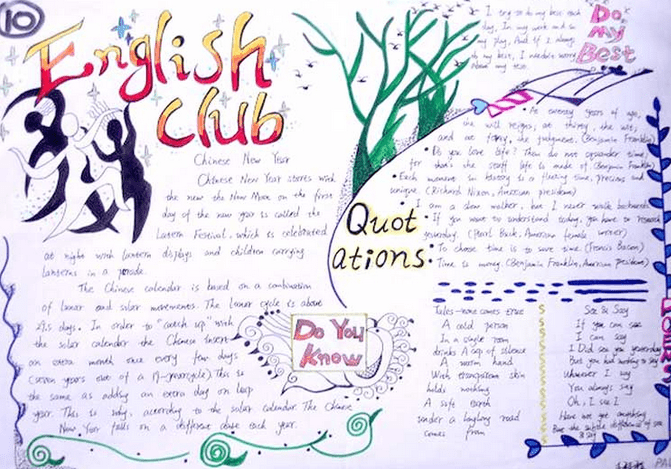 10
English
Club
Chinese New Year
Chinese New Year starts with
the new the New Moon on the first
day of the new year is called the
Latern Festival, which is celebrated
at night with lantern displays and children carrying
lanterns in a parade.
The Chinese calendar is based on a combination
of lunar and solar movements. The lunar cycle is about
29.5 days. In order to "catch up" with
the solar calendar the Chinese insert
an extra month once every few
years out of a This is
the same as adding an extra day on leap
year. This is why, according to the solar calendar. The Chinese
New Year falls on a different date each year.
Do You
Know
Do
My
Best
I try to do my best each
day, In my work and in
my play, And if I always
do my best, I needn't worry
about my test.
Quot
ations:
At twenty years of age,
the will reigns; at thirty, the wit;
and at forty, the judgment. (Benjamin Franklin)
Do you love life? Then do not squander time,
for that's the stuff life is made of. (Benjamin Franklin)
Each moment in history is a fleeting time, precious and
unique. (Richard Nixon, American president)
I am a slow walker, but I never walk backwards.
If you want to understand today, you have to research
yesterday. (Pearl Buck, American female writer)
To choose time is to save time. (Francis Bacon)
Time is money. (Benjamin Franklin, American president)
Tales come true
A cold person
In a single room
drinks A cup of silence
A warm hand
With skin
holds
A safe earth
under a road
comes from
See & Say
If you can see
I can say
I Did see you yesterday
But you had nothing to say
Whatever I say
You always say
Oh, I see!
Have we got something
But the subtle difference of see
& say